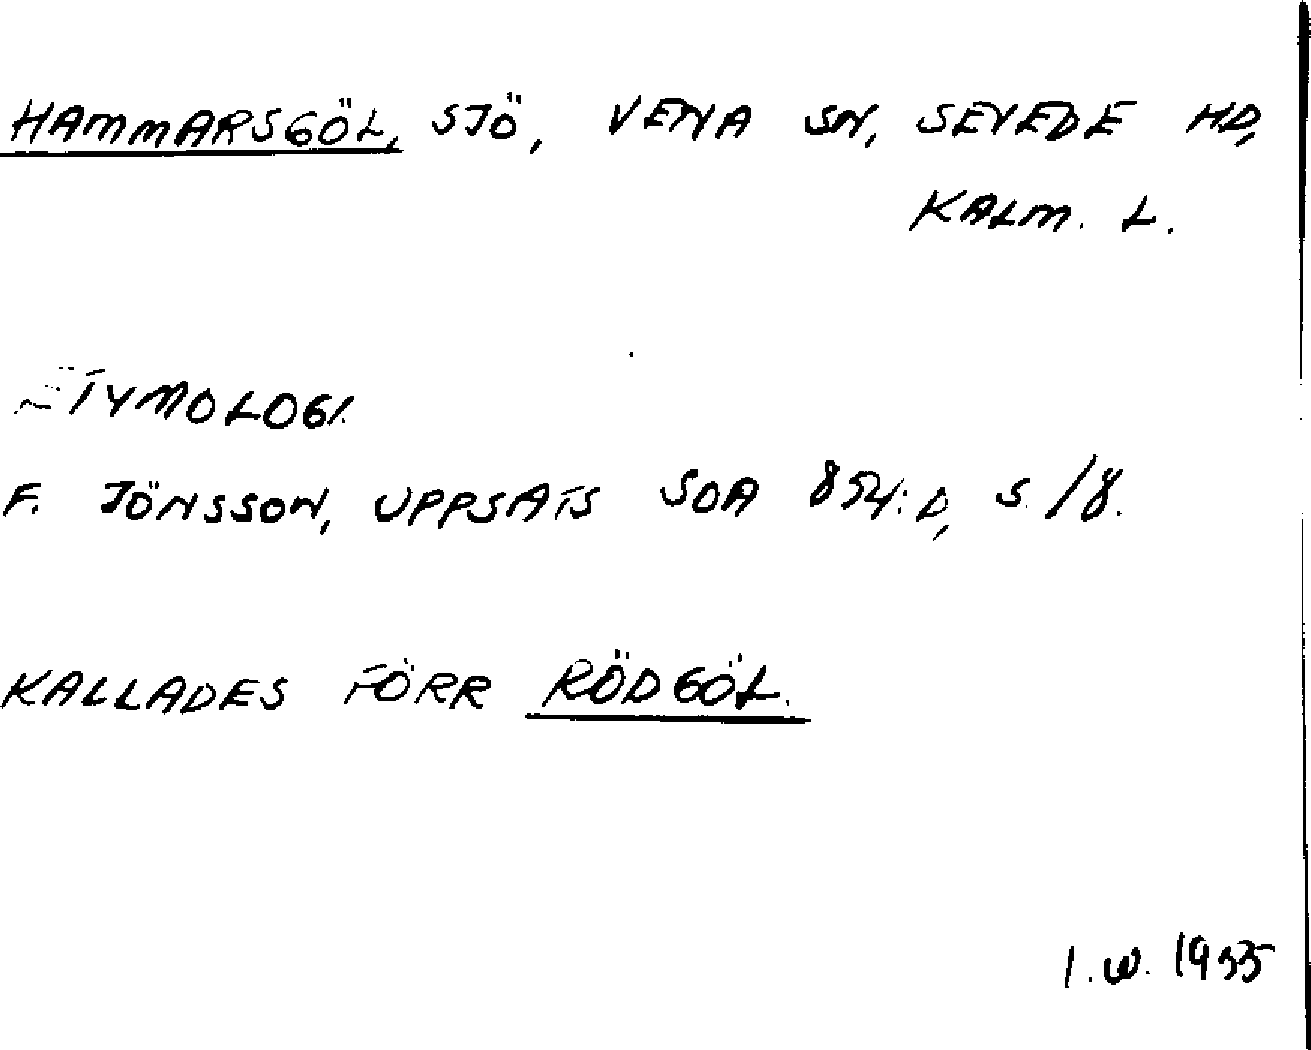 HAMMARSGÖL, SJÖ, VENA SN, SEVEDE HD,
KALM. L.
ETYMOLOGI.
F. JÖNSSON, UPPSATS SOA 854:D, S. 18.
KALLADES FÖRR RÖDGÖL.
I.W. 1955